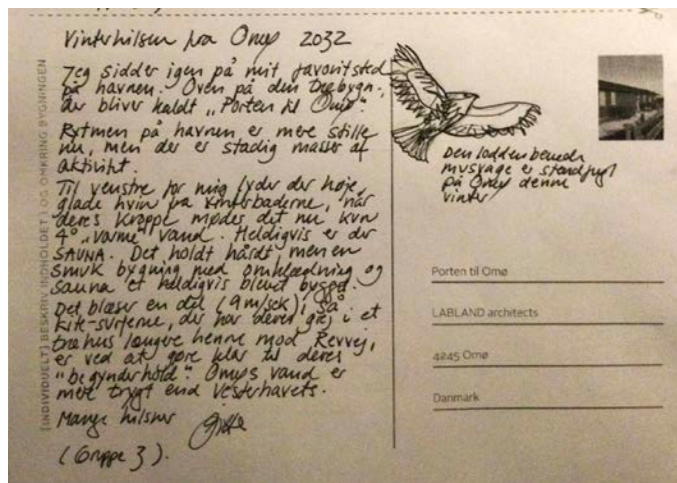 Vinterhilsen fra Omø 2032
Jeg sidder igen på mit favoritsted
på havnen. Oven på den træbygn.,
der bliver kaldt "Porten til Omø".
Rytmen på havnen er mere stille
nu, men der er stadig masser af
aktivitet.
Til venstre for mig lyder der høje,
glade hvin fra vinterbaderne, når
deres kroppe mødes det nu kun
4° "varme" vand. Heldigvis er der
SAUNA. Det holdt hårdt, men en
smuk bygning med omklædning og
sauna et heldigvis blevet bygget.
Det blæser en del (9 m/sek), så
kite-surferne, der har deres grej i et
træhus længere henne mod Revvej,
er ved at gøre klar til deres
"begynderhold". Omøs vand er
mere trygt end Vesterhavets.
Mange hilsner Gitte
(Gruppe 3).
[INDIVIDUELT] BESKRIV INDHOLDET I OG OMKRING BYGNINGEN
Den lodden benede
musvåge er standfugl
på Omø denne
vinter
Porten til Omø
LABLAND architects
4245 Omø
Danmark